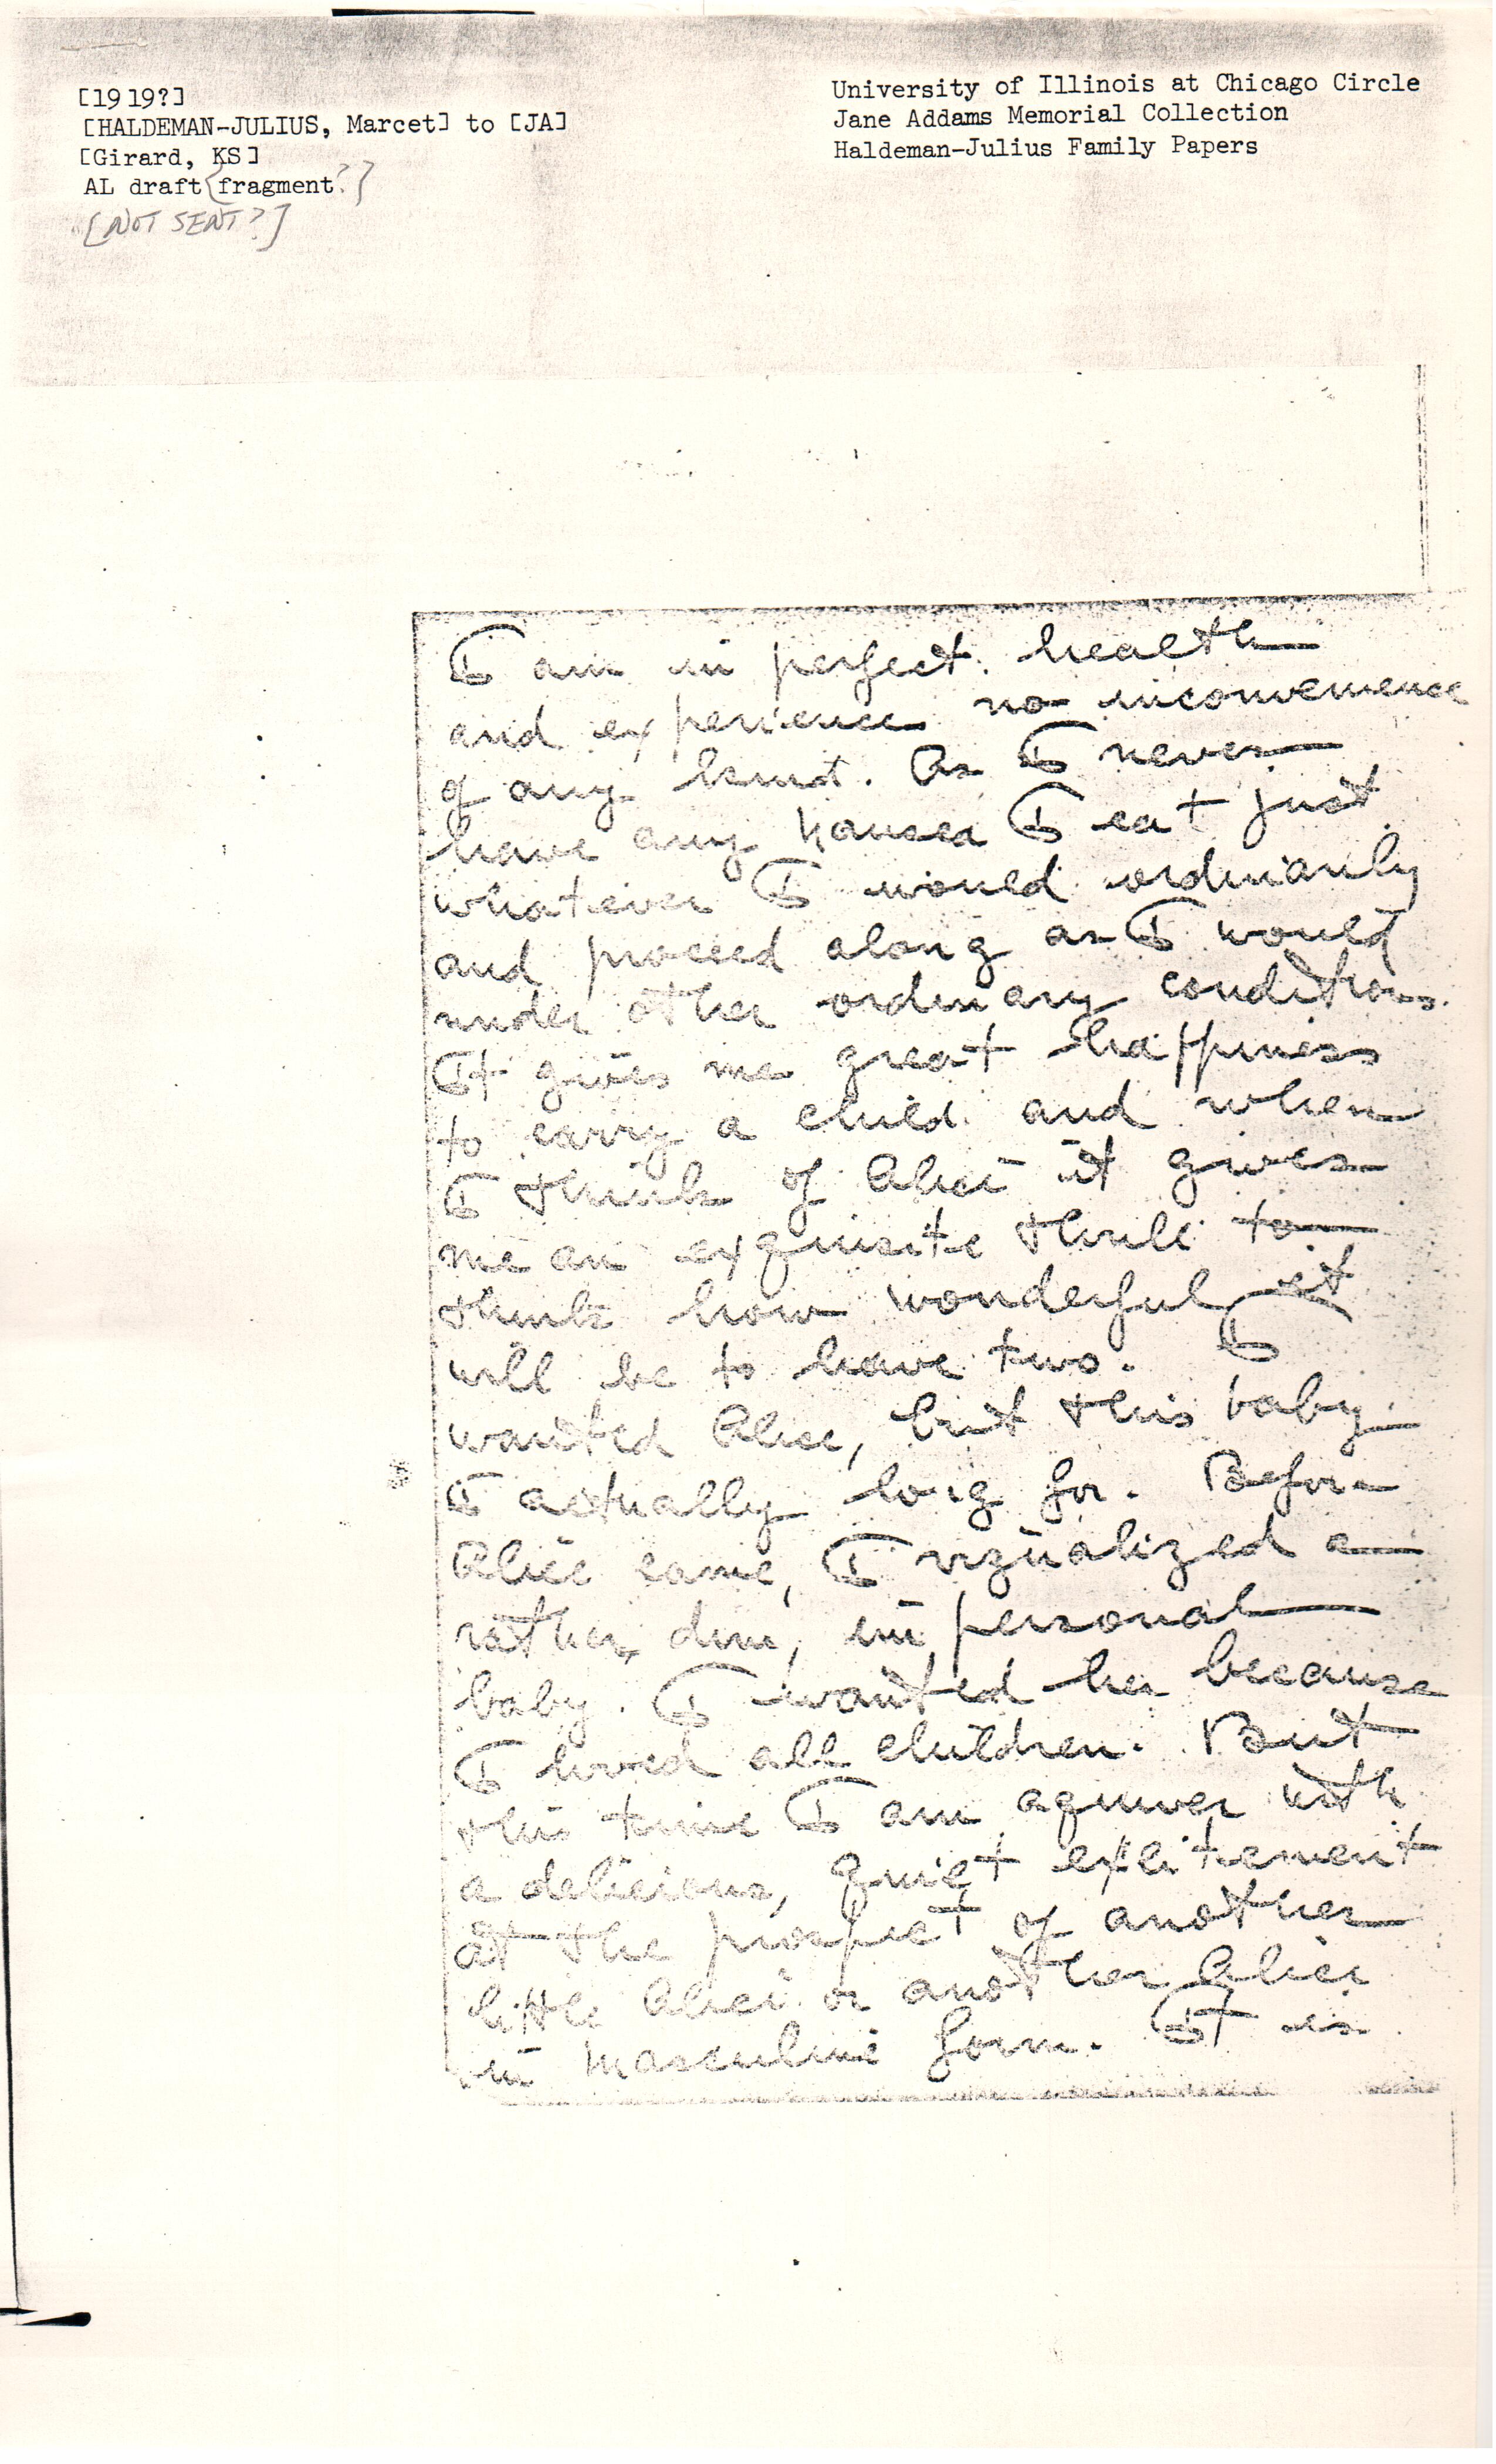 [1919?]
[HALDEMAN-JULIUS, Marcet] to [JA]
[Girard, KS]
AL draft {fragment?}
[NOT SENT?]
University of Illinois at Chicago Circle
Jane Addams Memorial Collection
Haldeman-Julius Family Papers
I am in perfect health
and experience no inconvenience
of any kind. As I never
have any nausea I eat just
whatever I would ordinarily
and proceed along as I would
under other ordinary conditions.
It gives me great happiness
to carry a child and when
I think of Alice it gives
me an exquisite thrill to
think how wonderful it
will be to have two. I
wanted Alice, but this baby
I actually long for. Before
Alice came, I vizualized a
rather, dim, impersonal
baby. I wanted her because
I loved all children. But
this time I am aquiver with
a delicious, quiet excitement
at the prospect of another
little Alice or another Alice
in masculine form. It is